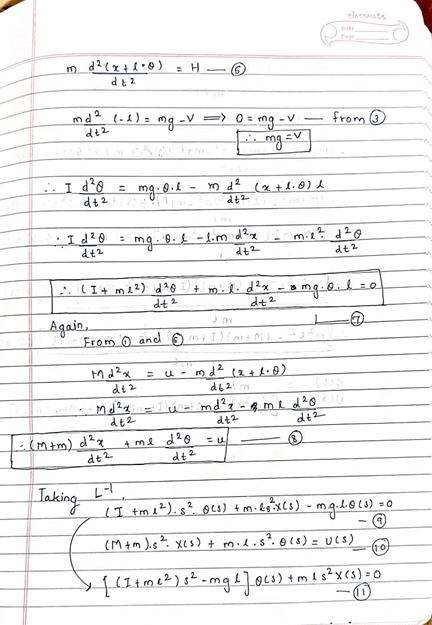 classmate
Date
Page
m d²(x + l·θ)/dt² = H — ⑥
m d²/dt² (-l) = mg - V ⟹ 0 = mg - V — from ③
∴ mg = V
∴ I d²θ/dt² = mg·θ·l - m d²/dt² (x + l·θ) l
∴ I d²θ/dt² = mg·θ·l - l·m d²x/dt² - m·l² · d²θ/dt²
∴ (I + ml²) d²θ/dt² + m·l· d²x/dt² - mg·θ·l = 0
⑦
Again,
From ① and ⑥
M d²x/dt² = u - m d²/dt² (x + l·θ)
∴ M d²x/dt² = u - m d²x/dt² - ml d²θ/dt²
∴ (M+m) d²x/dt² + ml d²θ/dt² = u — ⑧
Taking L⁻¹,
(I + ml²)·s²·θ(s) + m·l·s²·X(s) - m·g·l·θ(s) = 0
— ⑨
(M+m)·s²·X(s) + m·l·s²·θ(s) = U(s) — ⑩
[(I + ml²)s² - mgl] θ(s) + mls² X(s) = 0
— ⑪